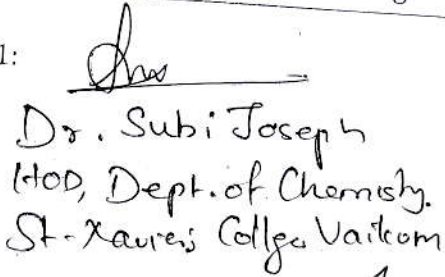 1:
Dr. Subi Joseph
HOD, Dept. of Chemistry.
St-Xavier's Collge Vaikom